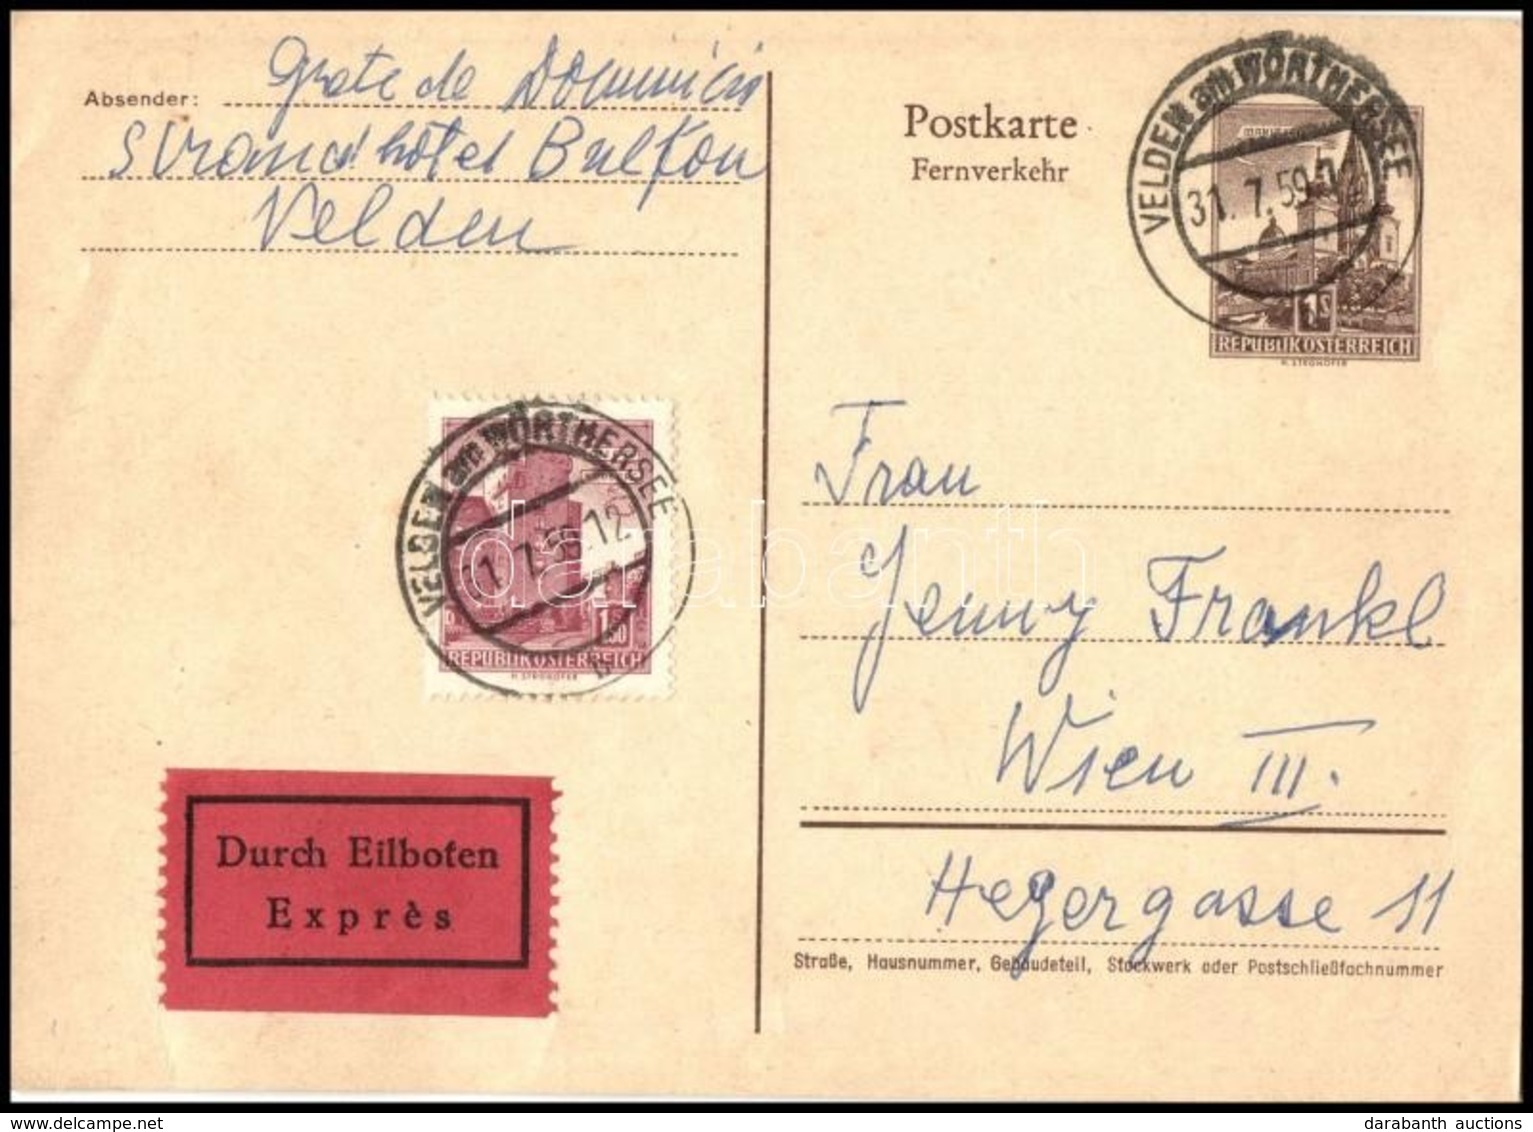 Absender: Grete de Dominicis
Strandhotel Bulfon
Velden
Postkarte
Fernverkehr
VELDEN am WÖRTHERSEE
31. 7. 59-12
1S
REPUBLIK OSTERREICH
H. STROHOFER
VELDEN am WÖRTHERSEE
1. 7. 59.12
b
1.50
REPUBLIK OSTERREICH
H. STROHOFER
Durch Eilboten
Exprès
Frau
Jenny Frankl
Wien III.
Hegergasse 11
Straße, Hausnummer, Gebäudeteil, Stockwerk oder Postschließfachnummer
darabanth
darabanth auctions